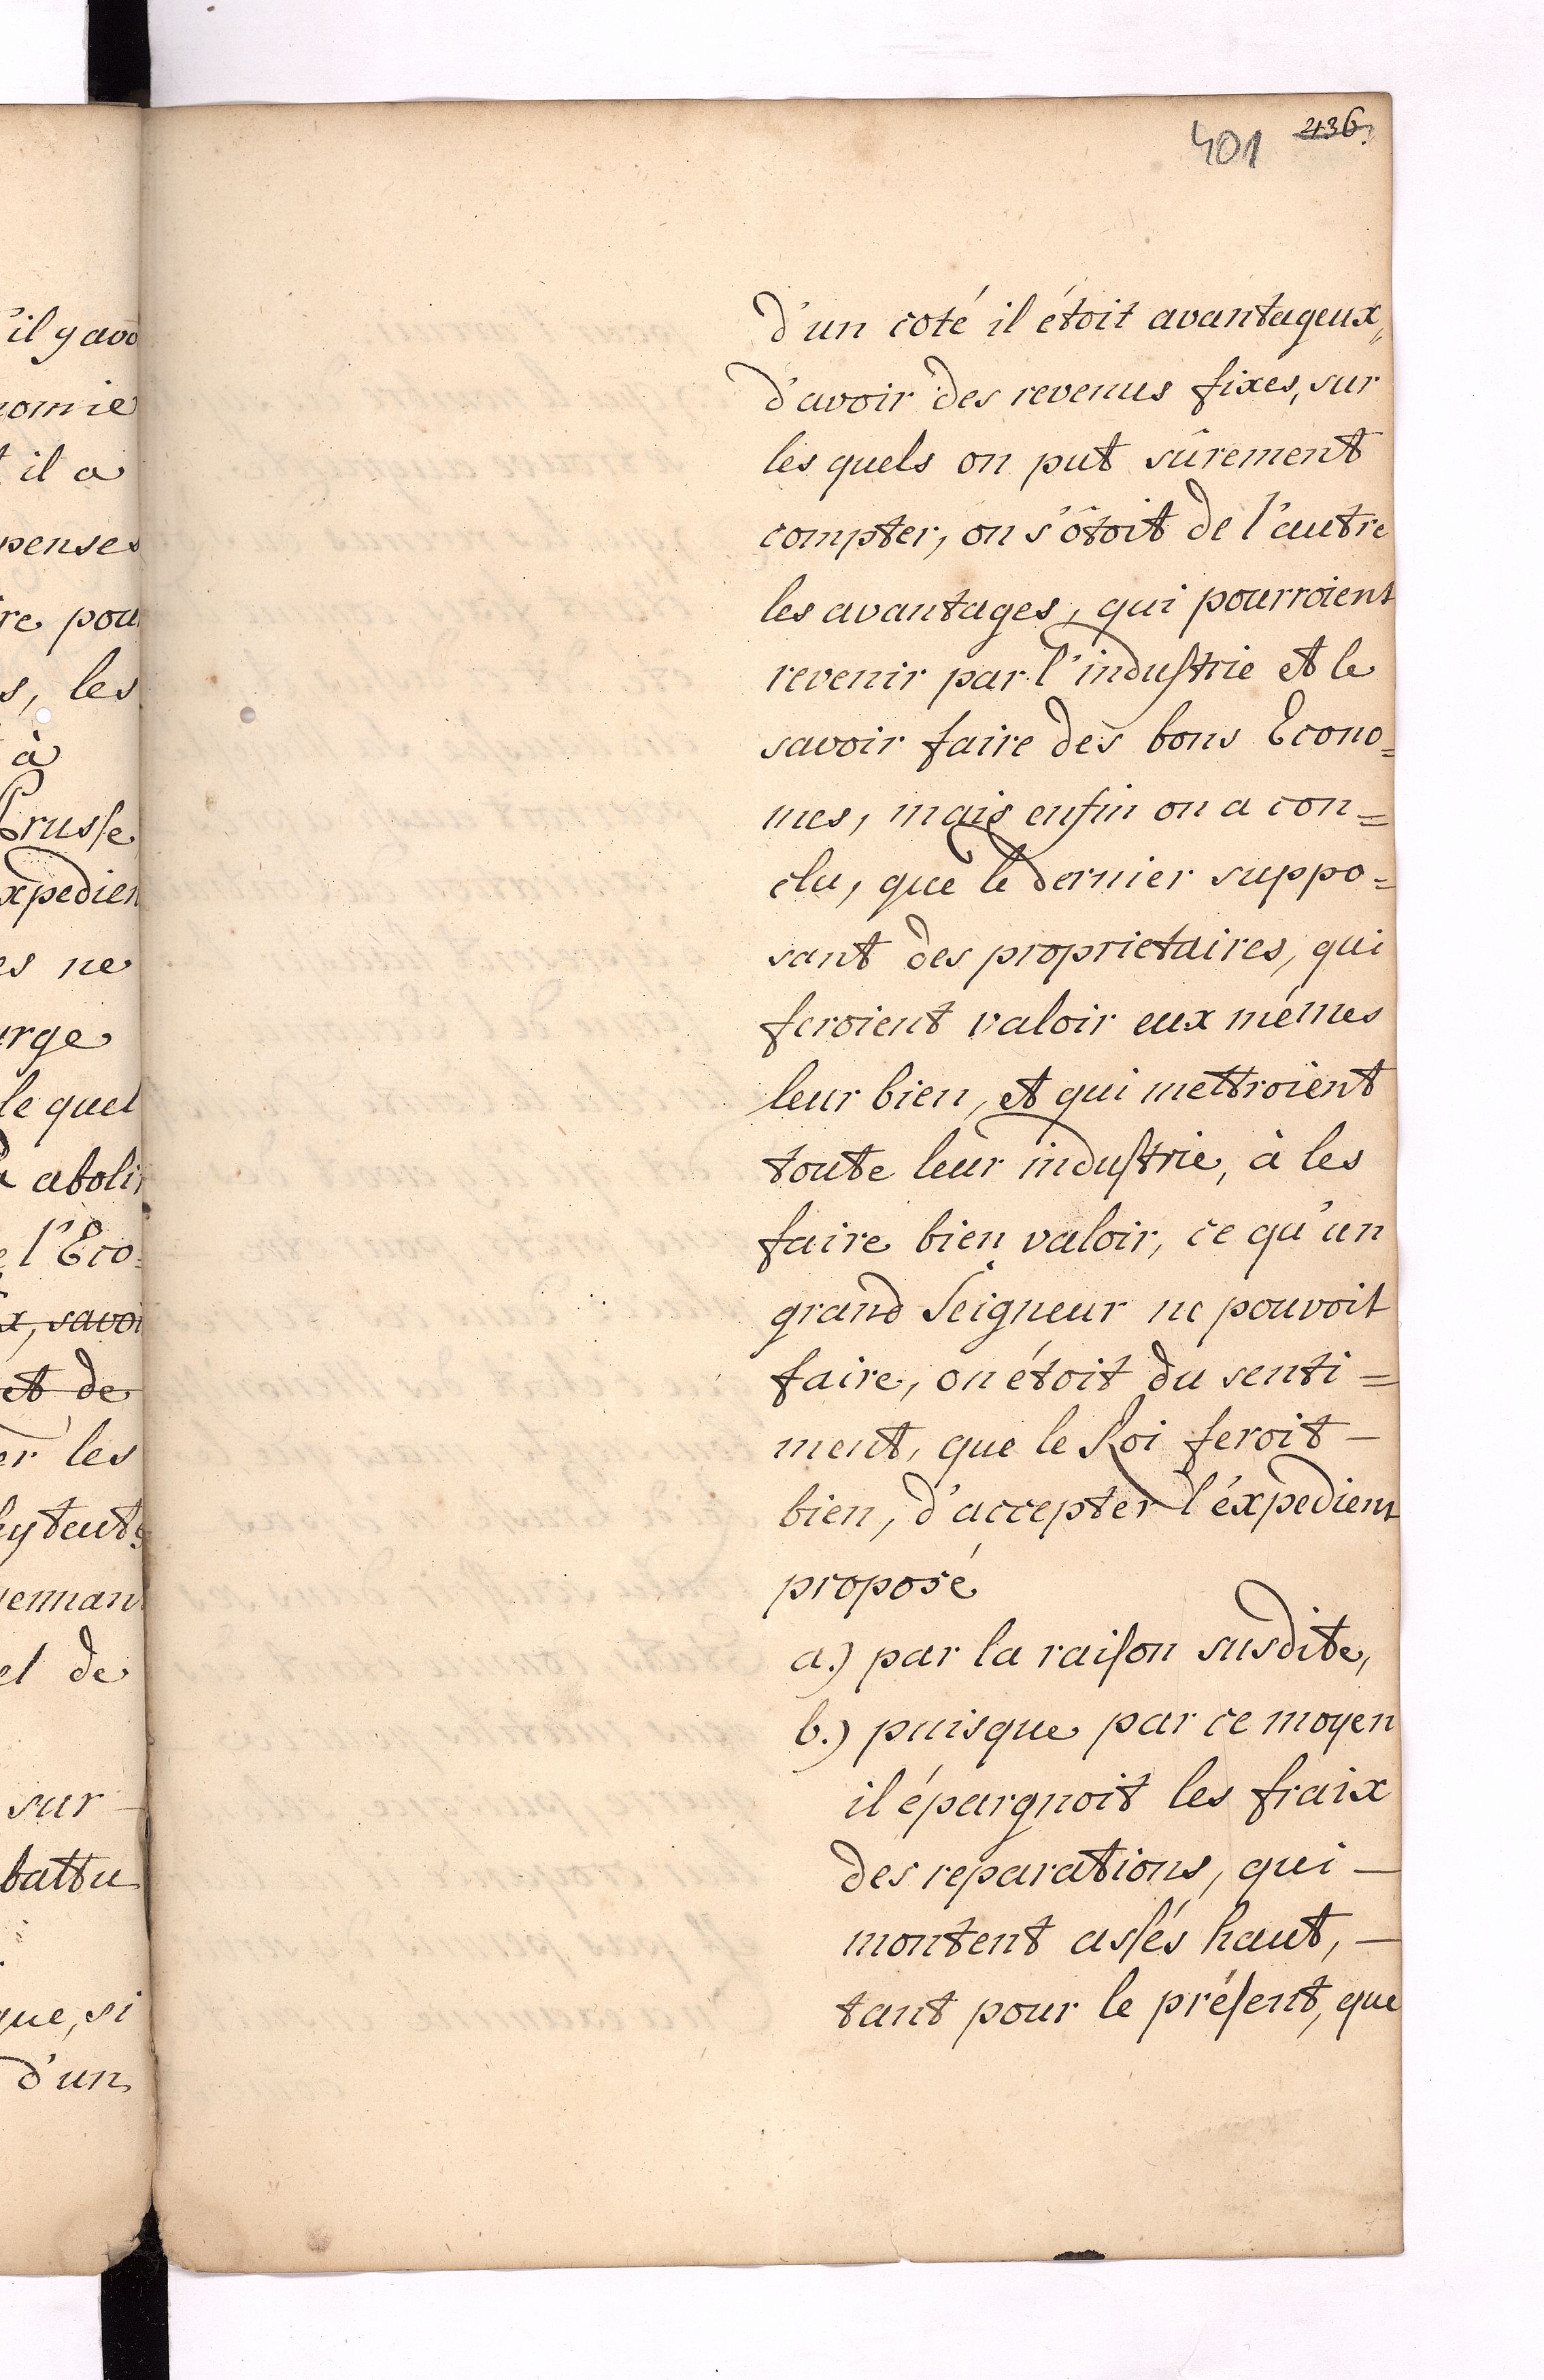 401 436.
d'un coté il étoit avantageux,
d'avoir des revenus fixes, sur
les quels on put sûrement
compter, on s'ôtoit de l'autre
les avantages, qui pourroient
revenir par l'industrie et le
savoir faire des bons Econo=
mes, mais enfin on a con=
clu, que le dernier suppo=
sant des proprietaires, qui
feroient valoir eux mémes
leur bien, et qui mettroient
toute leur industrie, à les
faire bien valoir, ce qu'un
grand Seigneur ne pouvoit
faire, on étoit du senti=
ment, que le Roi feroit —
bien, d'accepter l'éxpedient
proposé
a.) par la raison susdite,
b.) puisque par ce moyen
il épargnoit les fraix
des reparations, qui —
montent assés haut, —
tant pour le présent, que
'il y avo
nomie
il a
penses
re pour
s, les
à
Prusse
xpedien
es ne
urge
le quel
abolir
l'Eco=
x, savoi
et de
er les
el de
sur —
battu
que, si
d'un